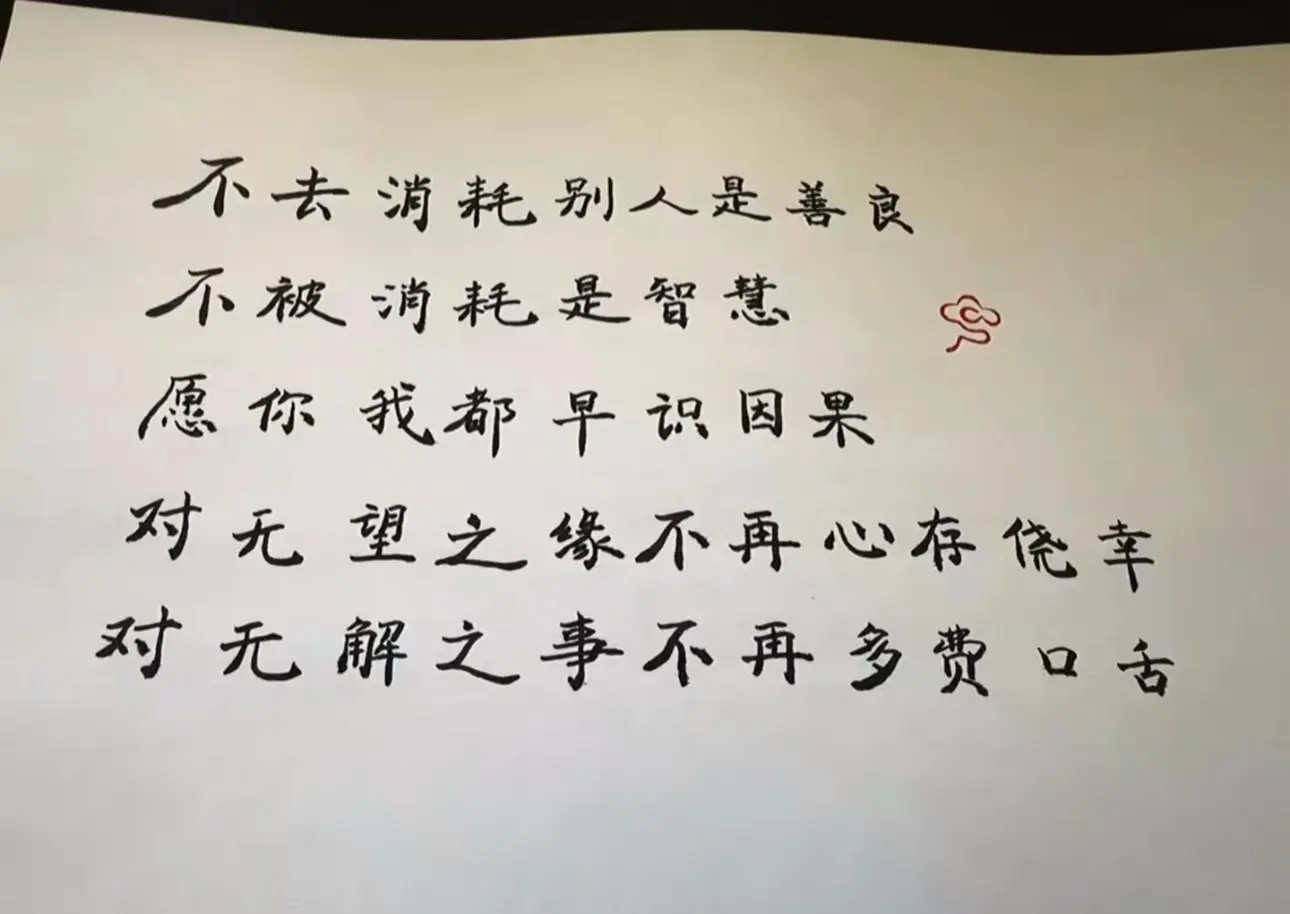 不去消耗别人是善良
不被消耗是智慧
愿你我都早识因果
对无望之缘不再心存侥幸
对无解之事不再多费口舌